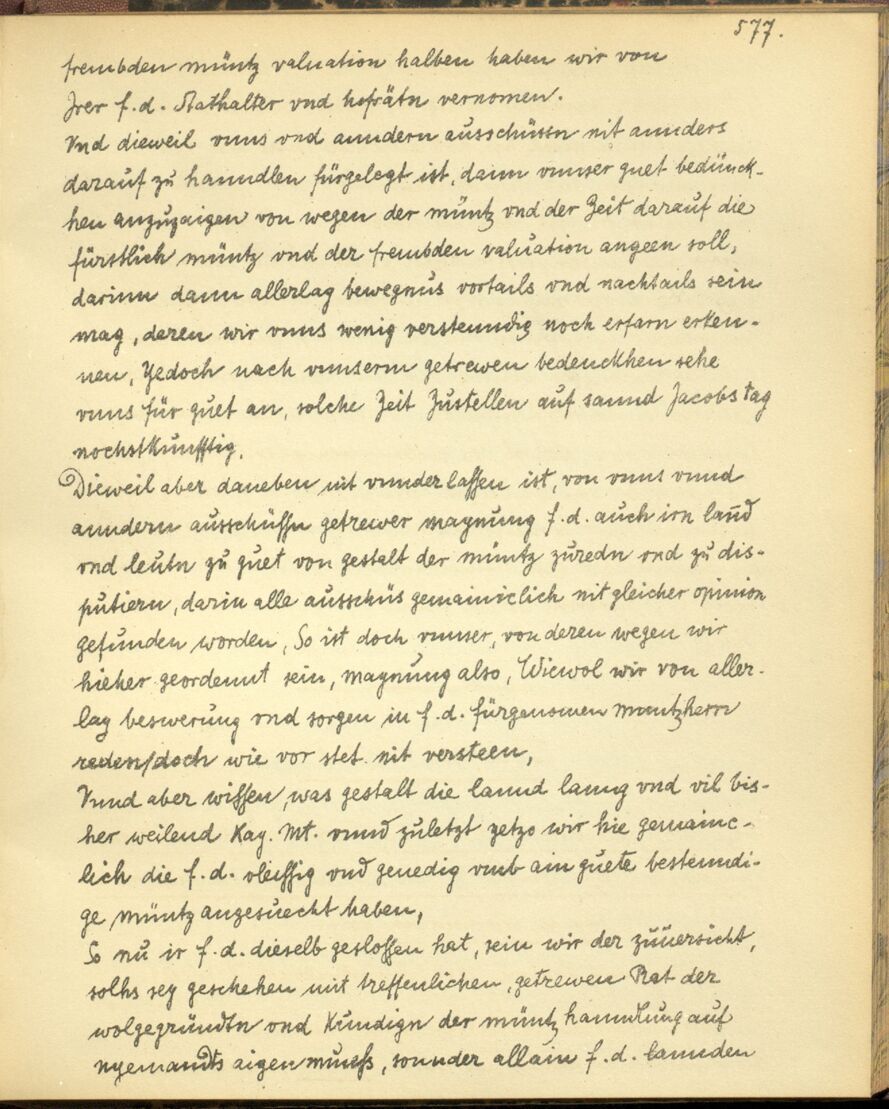 577.
frembden müntz valuation halben haben wir von
Irer f.d. Stathalter vnd hofrätn vernomen.
Vnd dieweil vnns vnd anndern ausschüssn nit annders
darauf zu hanndlen fürgelegt ist, dann vnnser guet bedünck-
hen anzuzaigen von wegen der müntz vnd der Zeit darauf die
fürstlich müntz vnd der frembden valuation angeen soll,
darinn dann allerlay bewegnus vortails vnd nachtails sein
mag, deren wir vnns wenig verstenndig noch erfarn erken-
nen, Yedoch nach vnnserm getrewen bedenckhen sehe
vnns für guet an, solche Zeit Zustellen auf sannd Jacobs tag
nochstkunfftig.
Dieweil aber daneben nit vnnderlassen ist, von vnns vnnd
anndern ausschüssn getrewer maynung f.d. auch irn lannd
vnd leutn zu guet von gestalt der müntz zuredn vnd zu dis-
putiern, darin alle ausschüs gemainiclich nit gleicher opinion
gefunden worden, So ist doch vnnser, von deren wegen wir
hieher geordennt sein, maynung also, Wiewol wir von aller-
lay beswerung vnd sorgen in f.d. fürgenomen muntzherrn
reden/doch wie vor stet nit versteen,
Vnnd aber wissen, was gestalt die lannd lanng vnd vil bis-
her weilend Kay. Mt. vnnd zuletzt yetzo wir hie gemainc-
lich die f.d. vleissig vnd genedig vmb ain guete bestenndi-
ge müntz angesuecht haben,
So nu ir f.d. dieselb geslossen hat, sein wir der zuuersicht,
solhs sey geschehen mit treffenlichen, getrewen Rat der
wolgegründtn vnd Kundign der müntzhanndlung auf
nyemandts aigen nuess, sonnder allain f.d. lannden